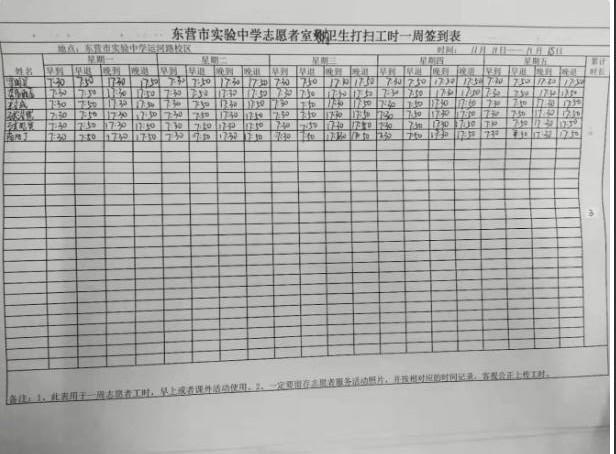 东营市实验中学志愿者室外卫生打扫工时一周签到表
地点：东营市实验中学运河路校区 时间： 11月 11日—— 11月 15日
星期一 星期二 星期三 星期四 星期五 累计时长
姓名 早到 早退 晚到 晚退 早到 早退 晚到 晚退 早到 早退 晚到 晚退 早到 早退 晚到 晚退 早到 早退 晚到 晚退
7:30 7:50 17:30 17:50 7:30 7:50 17:30 17:50 7:30 7:50 17:30 17:50 7:30 7:50 17:30 17:50 7:30 7:50 17:30 17:50
7:30 7:50 17:30 17:50 7:30 7:50 17:30 17:50 7:30 7:50 17:30 17:50 7:30 7:50 17:30 17:50 7:30 7:50 17:30 17:50
7:30 7:50 17:30 17:50 7:30 7:50 17:30 17:50 7:30 7:50 17:30 17:50 7:30 7:50 17:30 17:50 7:30 7:50 17:30 17:50
7:30 7:50 17:30 17:50 7:30 7:50 17:30 17:50 7:30 7:50 17:30 17:50 7:30 7:50 17:30 17:50 7:30 7:50 17:30 17:50
7:30 7:50 17:30 17:50 7:30 7:50 17:30 17:50 7:30 7:50 17:30 17:50 7:30 7:50 17:30 17:50 7:30 7:50 17:30 17:50
7:30 7:50 17:30 17:50 7:30 17:50 17:30 17:50 7:30 7:50 17:30 17:50 7:30 7:50 17:30 17:50 7:30 17:30 17:50
备注：1、此表用于一周志愿者工时，早上或者课外活动使用。2、一定要留存志愿者服务活动照片，并按相对应的时间记录，客观公正上传工时。